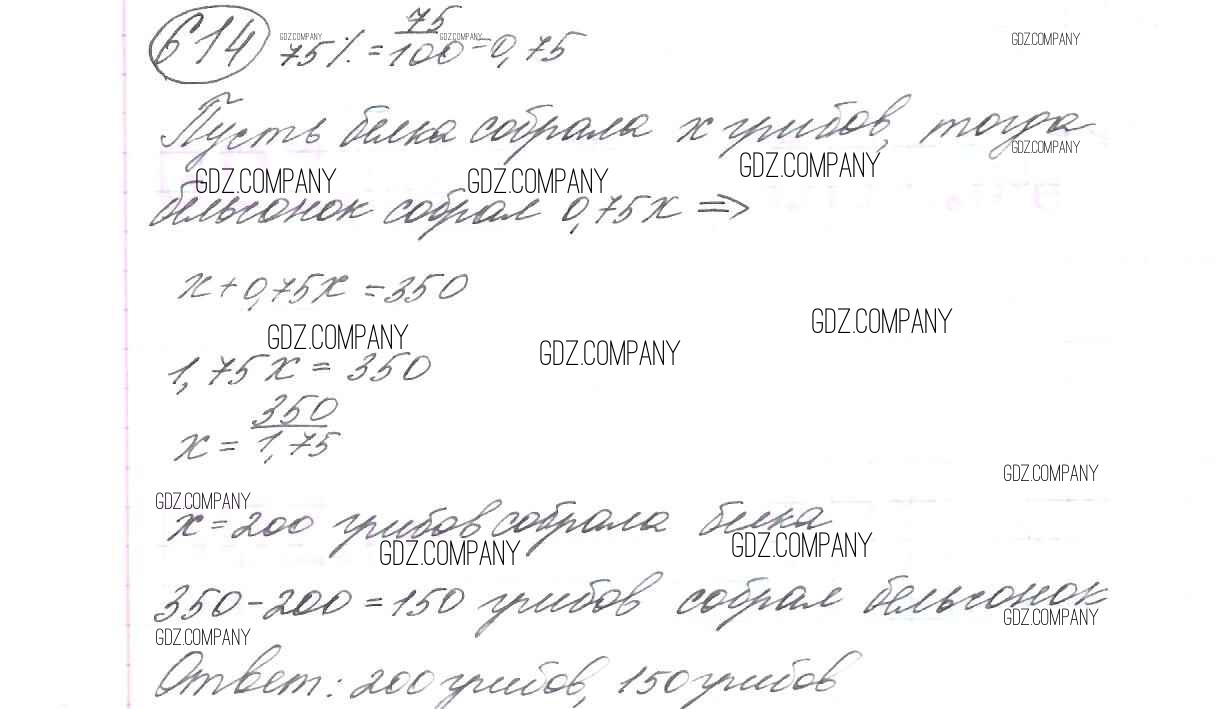 614 75% = 75/100 = 0,75
GDZ.COMPANY GDZ.COMPANY GDZ.COMPANY
Пусть белка собрала х грибов, тогда
GDZ.COMPANY
GDZ.COMPANY GDZ.COMPANY GDZ.COMPANY
бельчонок собрал 0,75х =>
х + 0,75х = 350
GDZ.COMPANY GDZ.COMPANY GDZ.COMPANY
1,75х = 350
х = 350/1,75
GDZ.COMPANY
GDZ.COMPANY
х = 200 грибов собрала белка
GDZ.COMPANY GDZ.COMPANY
350 - 200 = 150 грибов собрал бельчонок
GDZ.COMPANY GDZ.COMPANY
Ответ: 200 грибов, 150 грибов